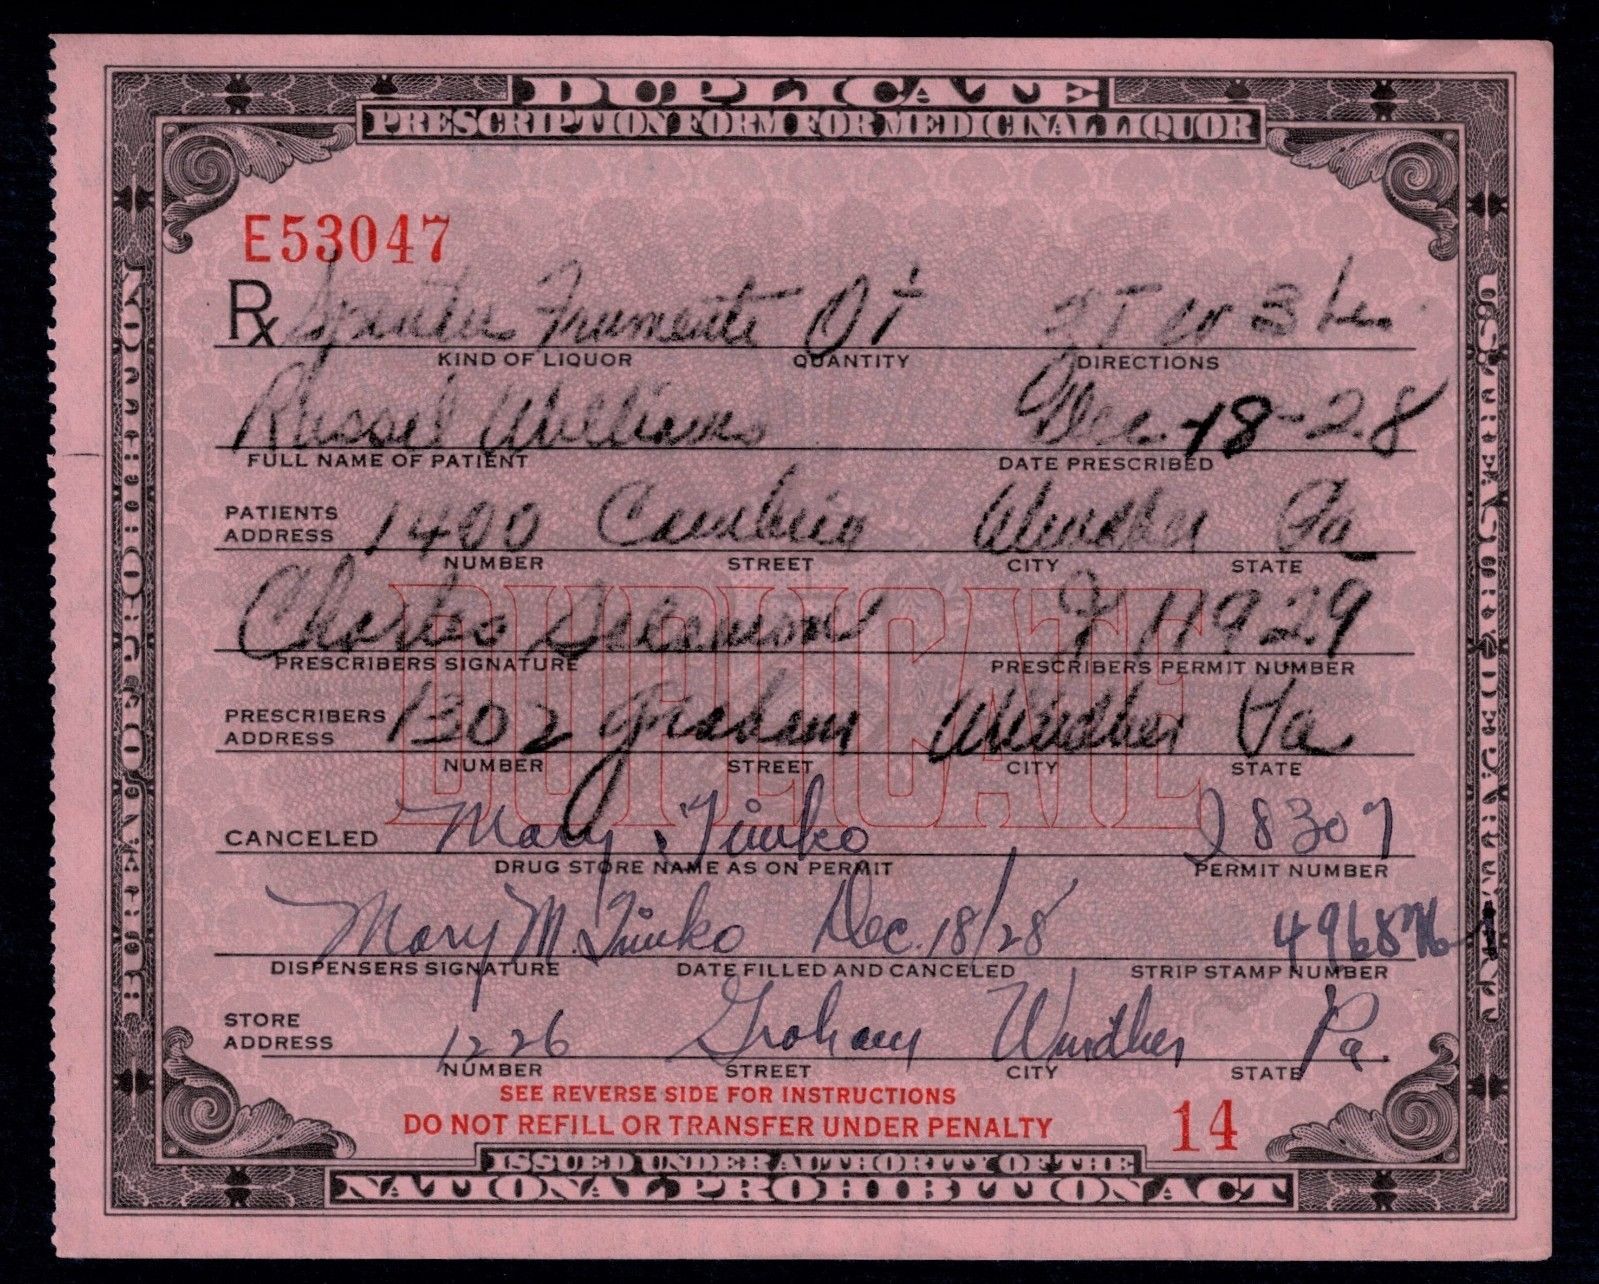 DUPLICATE
PRESCRIPTION FORM FOR MEDICINAL LIQUOR
BUREAU OF PROHIBITION
U.S. TREASURY DEPARTMENT
E53047
Rx Frumenti O
KIND OF LIQUOR QUANTITY DIRECTIONS
Russel Williams Dec-18-28
FULL NAME OF PATIENT DATE PRESCRIBED
PATIENTS ADDRESS 1400 Cambria Windber Pa
NUMBER STREET CITY STATE
DUPLICATE
Charles Solomon 11929
PRESCRIBERS SIGNATURE PRESCRIBERS PERMIT NUMBER
PRESCRIBERS ADDRESS 1302 Graham Windber Pa
NUMBER STREET CITY STATE
CANCELED Mary Timko 28307
DRUG STORE NAME AS ON PERMIT PERMIT NUMBER
Mary M. Timko Dec. 18/28
DISPENSERS SIGNATURE DATE FILLED AND CANCELED STRIP STAMP NUMBER
STORE ADDRESS 1226 Graham Windber Pa.
NUMBER STREET CITY STATE
SEE REVERSE SIDE FOR INSTRUCTIONS
DO NOT REFILL OR TRANSFER UNDER PENALTY 14
ISSUED UNDER AUTHORITY OF THE
NATIONAL PROHIBITION ACT